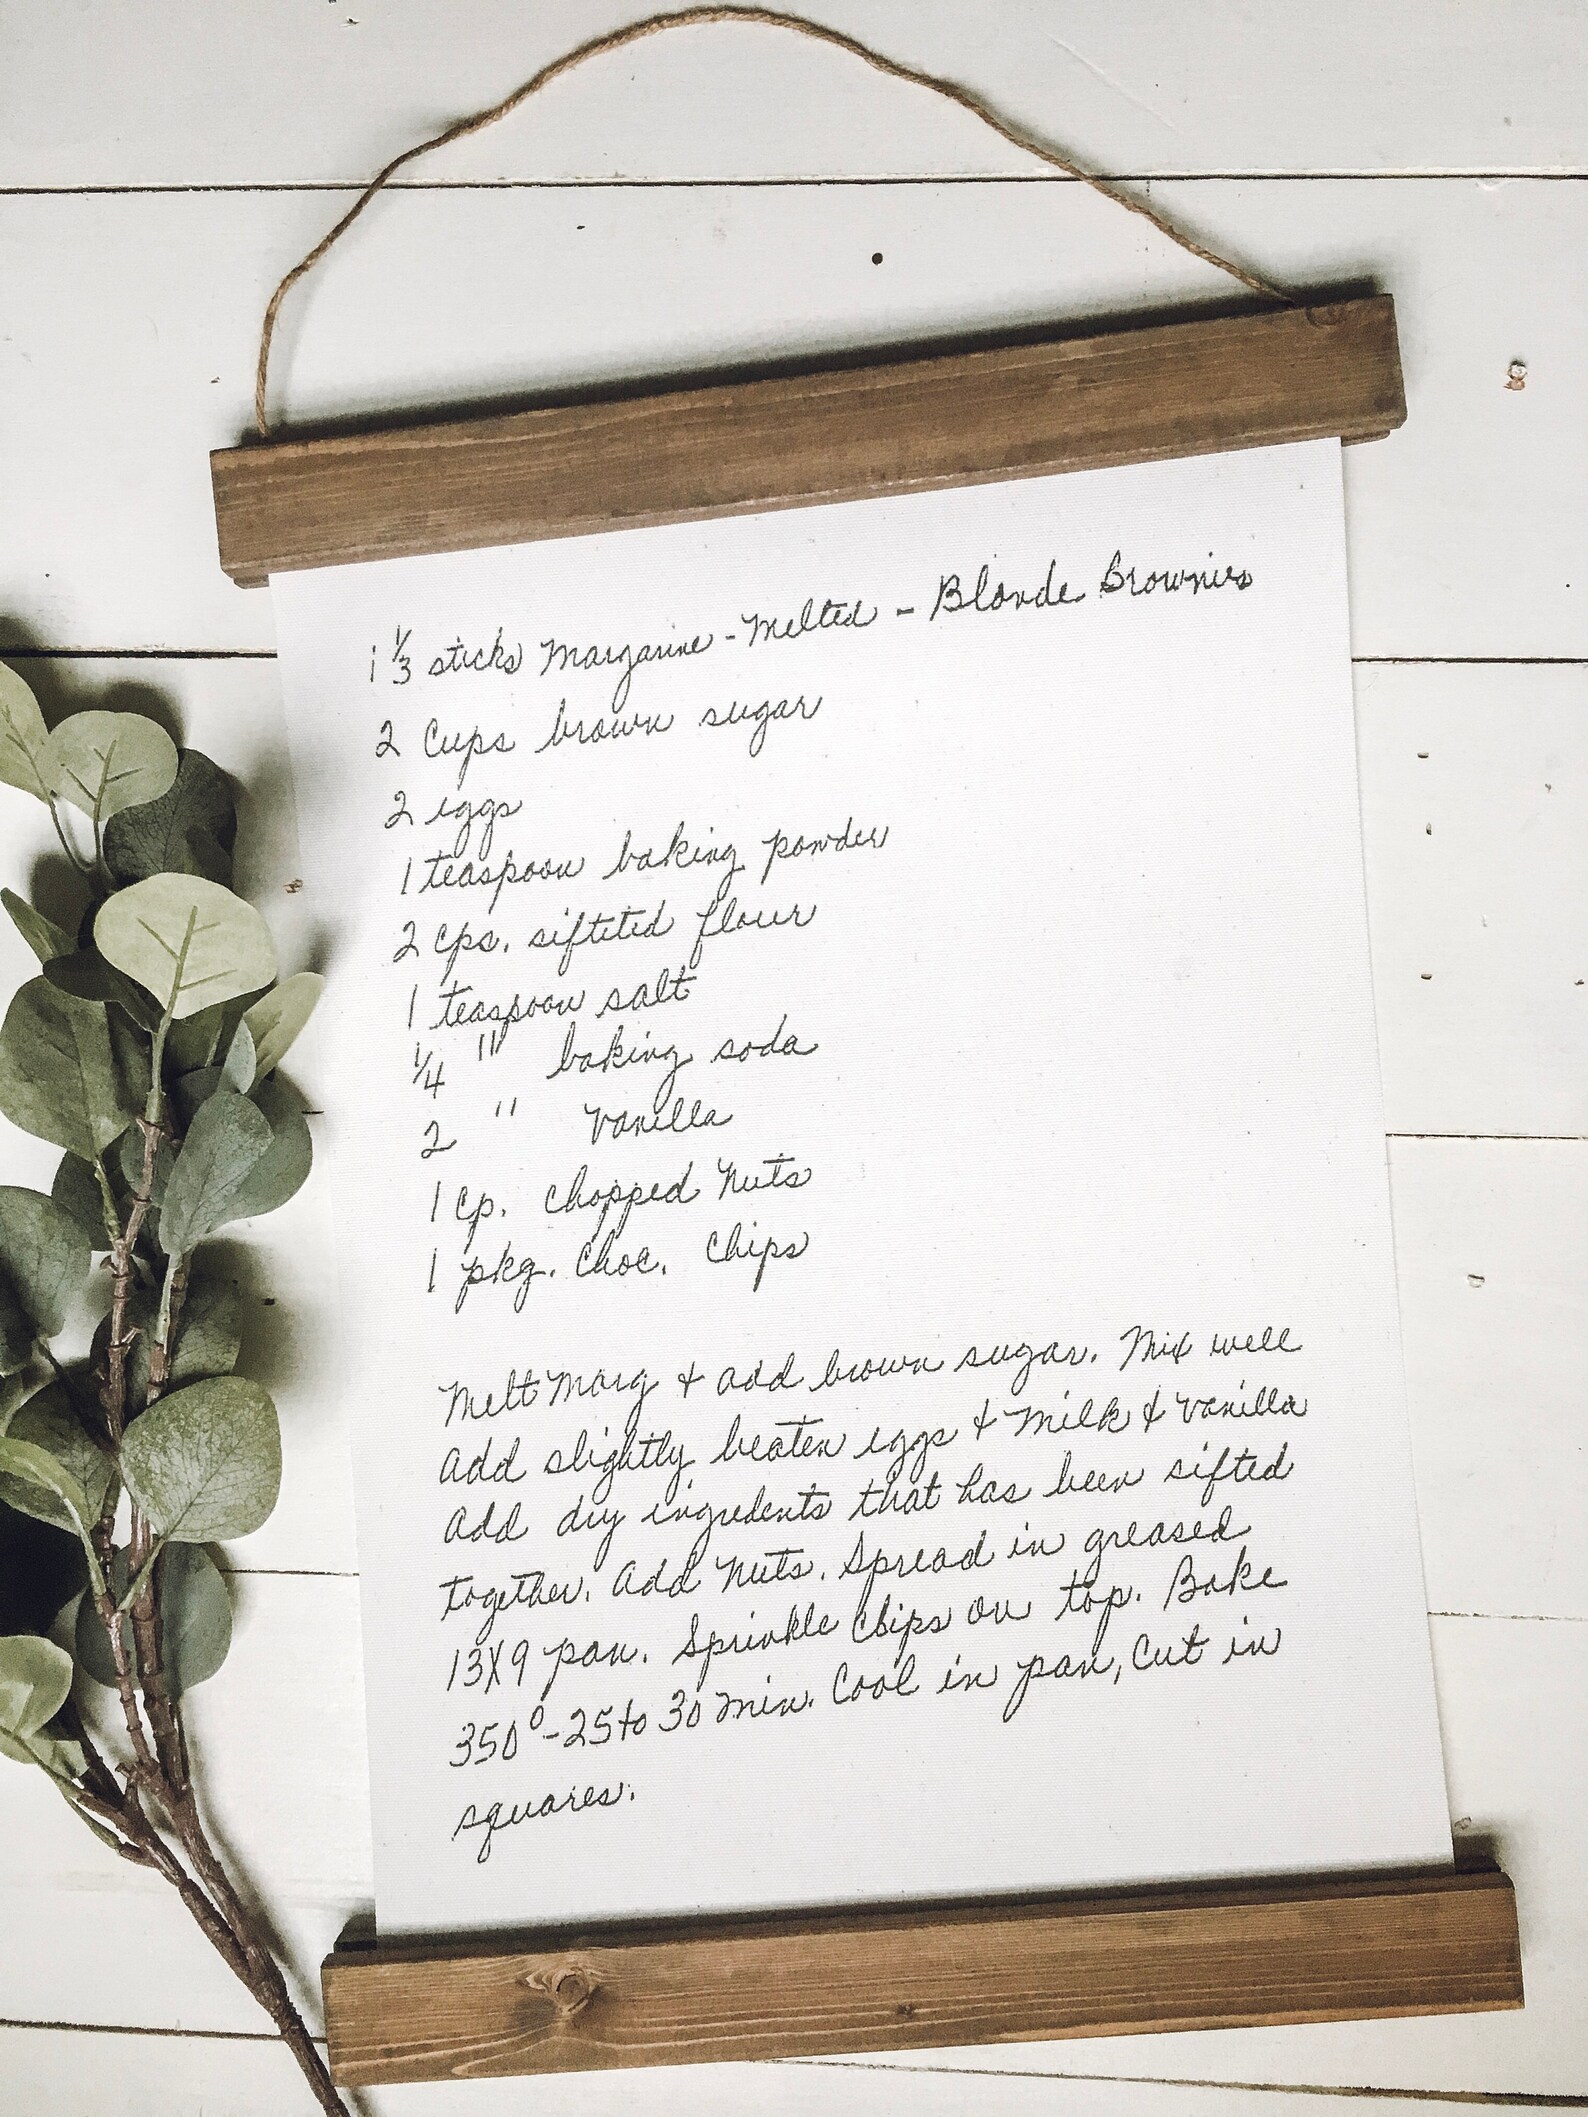 1 1/3 sticks Margarine - Melted - Blonde Brownies
2 Cups brown sugar
2 eggs
1 teaspoon baking powder
2 cps. sifteted flour
1 teaspoon salt
1/4 " baking soda
2 " Vanilla
1 cp. chopped Nuts
1 pkg. Choc. Chips
Melt Marg & add brown sugar. Mix well
Add slightly beaten eggs & Milk & vanilla
Add dry ingredents that has been sifted
together. Add Nuts. Spread in greased
13X9 pan. Sprinkle Chips on top. Bake
350° - 25 to 30 Min. Cool in pan, Cut in
squares.